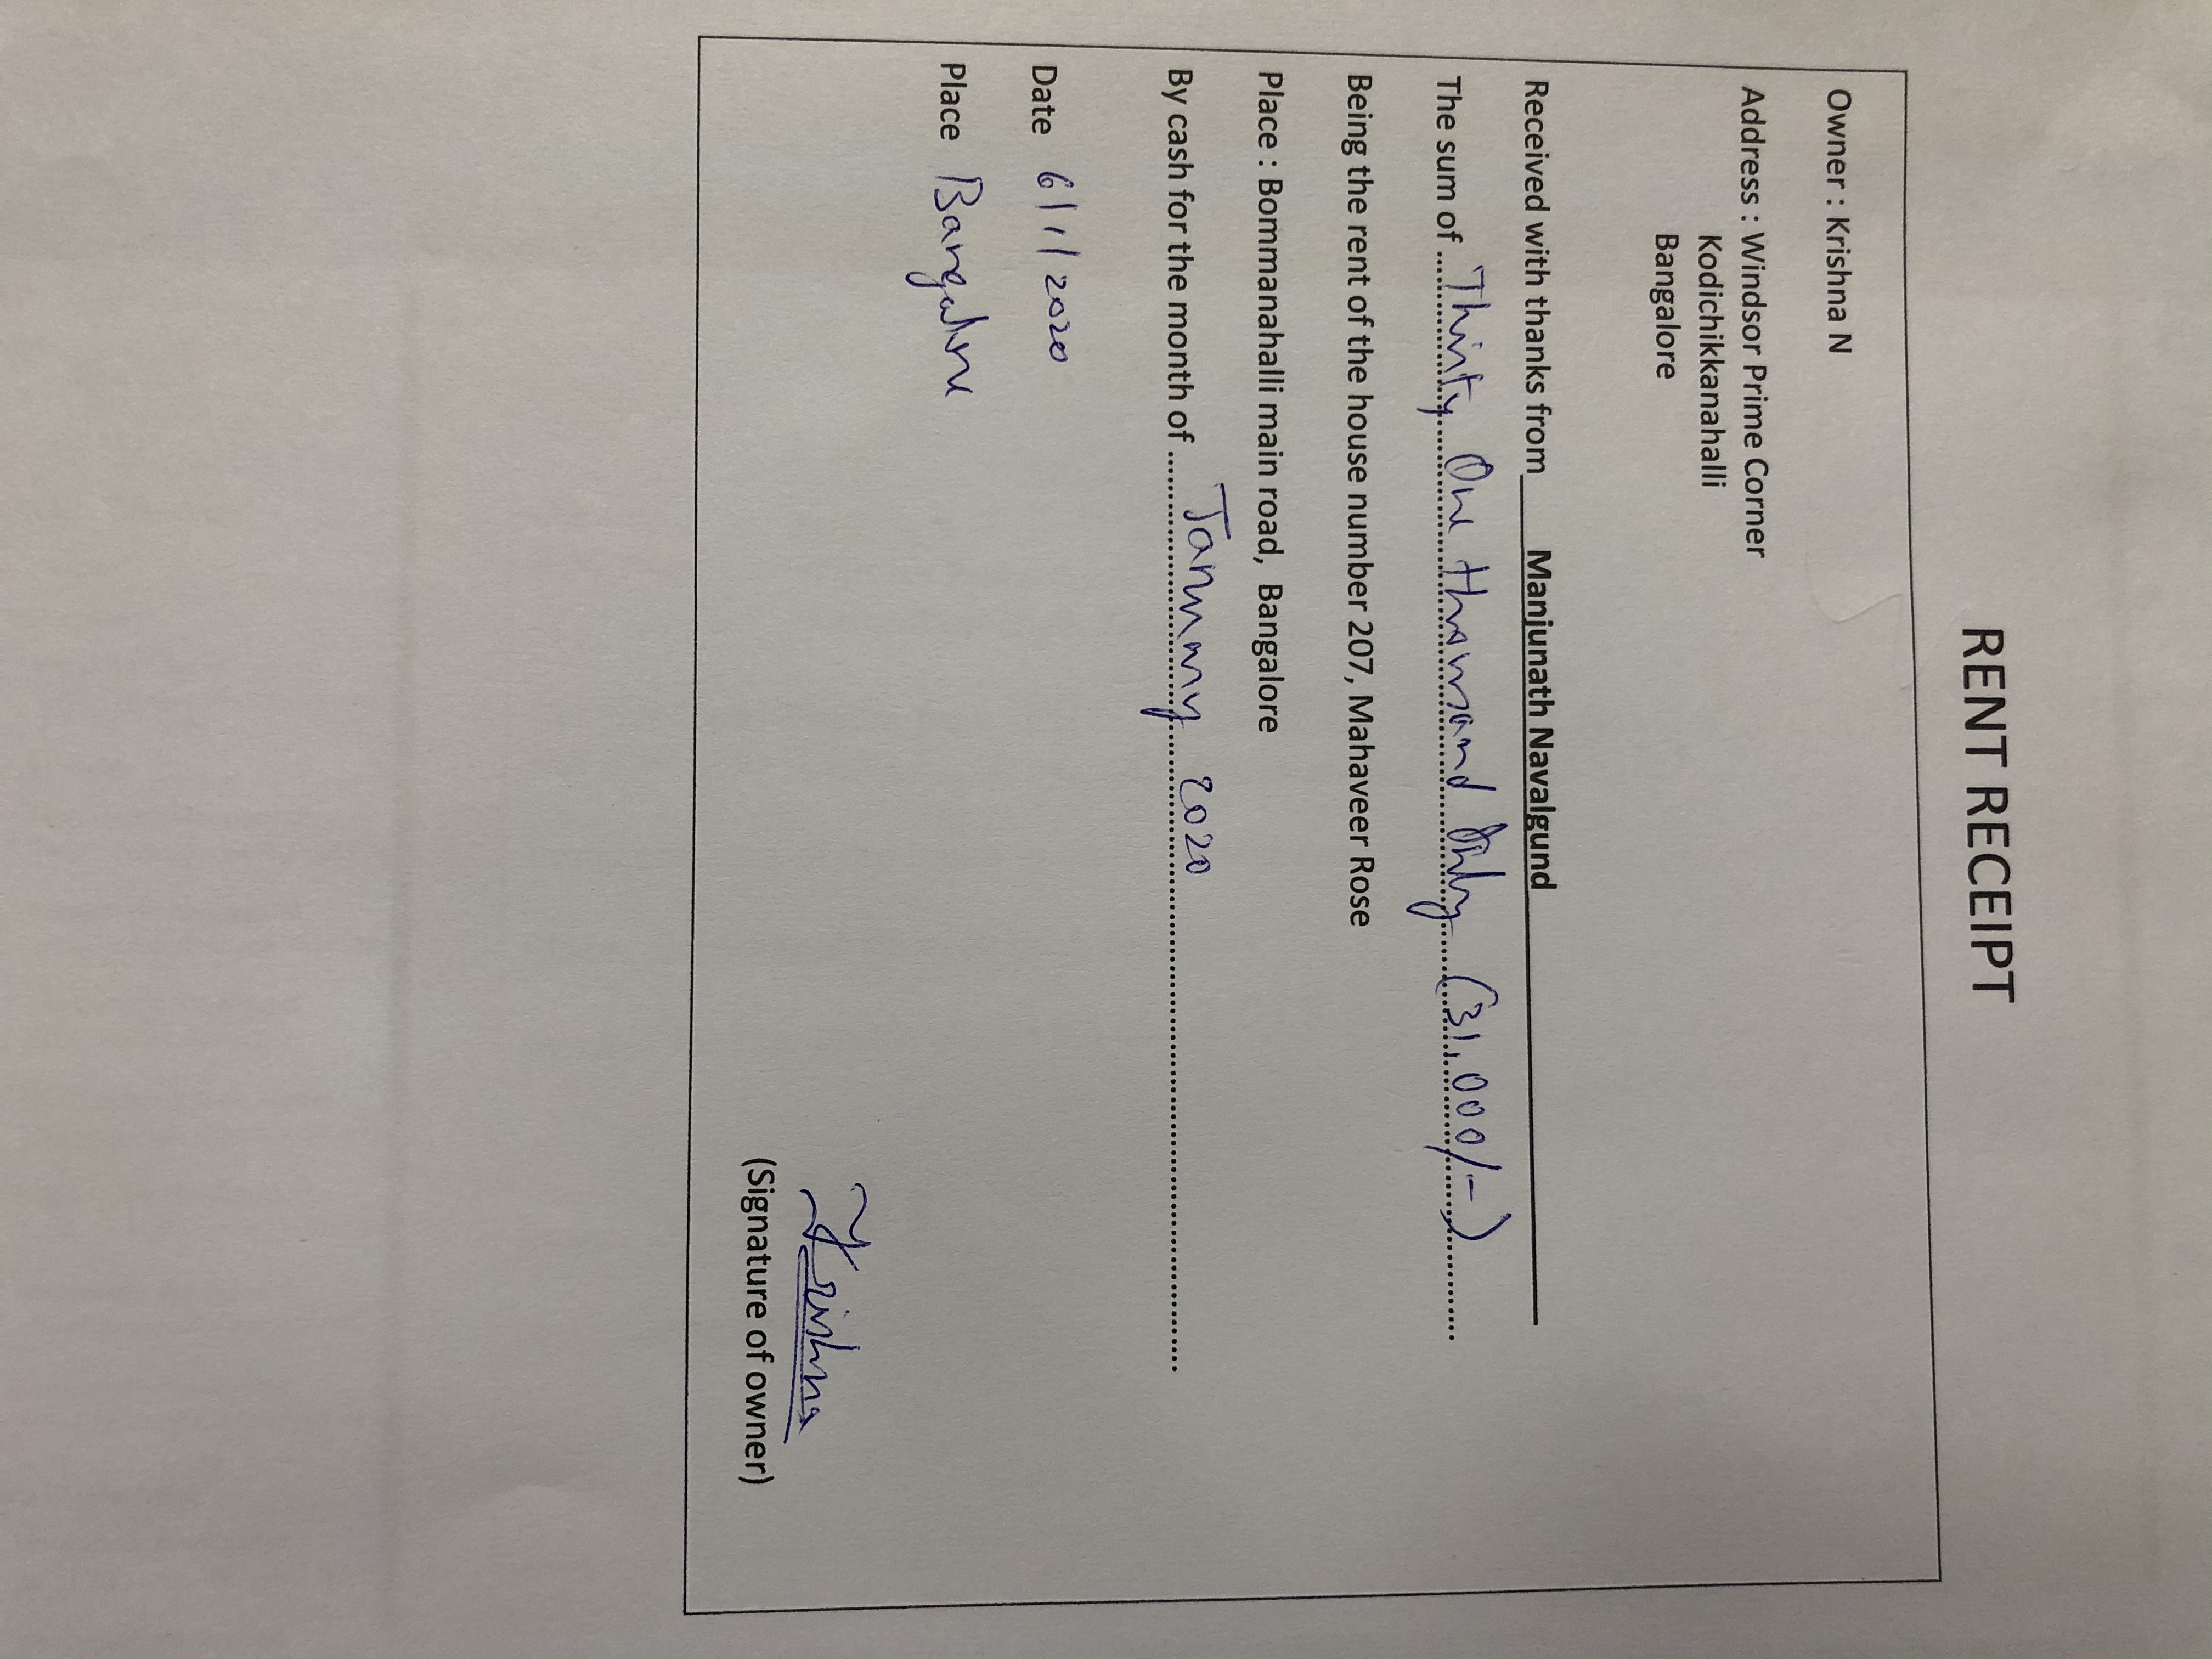 RENT RECEIPT
Owner : Krishna N
Address : Windsor Prime Corner
Kodichikkanahalli
Bangalore
Received with thanks from Manjunath Navalgund
The sum of Thirty One thousand Only (31,000/-)
Being the rent of the house number 207, Mahaveer Rose
Place : Bommanahalli main road, Bangalore
By cash for the month of January 2020
Date 6/1/2020
Place Bangalore
Krishna
(Signature of owner)